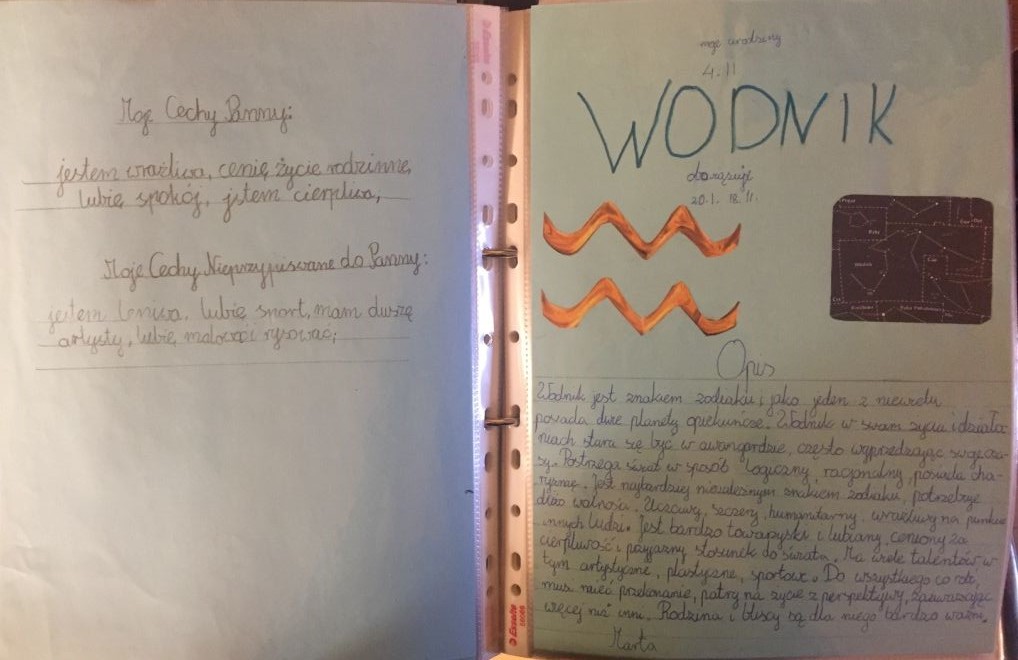 Moje Cechy Panny:
jestem wrażliwa, cenię życie rodzinne,
lubię spokój, jstem cierpliwa,
Moje Cechy Nieprzypisowane do Panny:
jestem leniwa, lubię sport, mam duszę
artysty, lubię malować i rysować;
Esselte
moje urodziny
4.11
WODNIK
20.1. 18.11.
Opis
Wodnik jest znakiem zodiaku i jako jeden z niewielu
posiada dwie planety opiekuńcze. Wodnik w swoim życiu i działa
niach stara się być w awangardzie, często wyprzedzając swoje cza-
sy. Postrzega świat w sposób logiczny, racjonalny, posiada cha-
ryzmę. Jest najbardziej niezależnym znakiem zodiaku, potrzebuje
dużo wolności. Uczciwy, szczery, humanitarny, wrażliwy na punkcie
innych ludzi. Jest bardzo towarzyski i lubiany, ceniony za
cierpliwość i przyjazny stosunek do świata. Ma wiele talentów w
tym artystyczne, plastyczne, sportowe. Do wszystkiego co robi,
musi mieć przekonanie, patrzy na życie z perspektywy, zauważając
więcej niż inni. Rodzina i bliscy są dla niego bardzo ważni.
Marta
Esselte